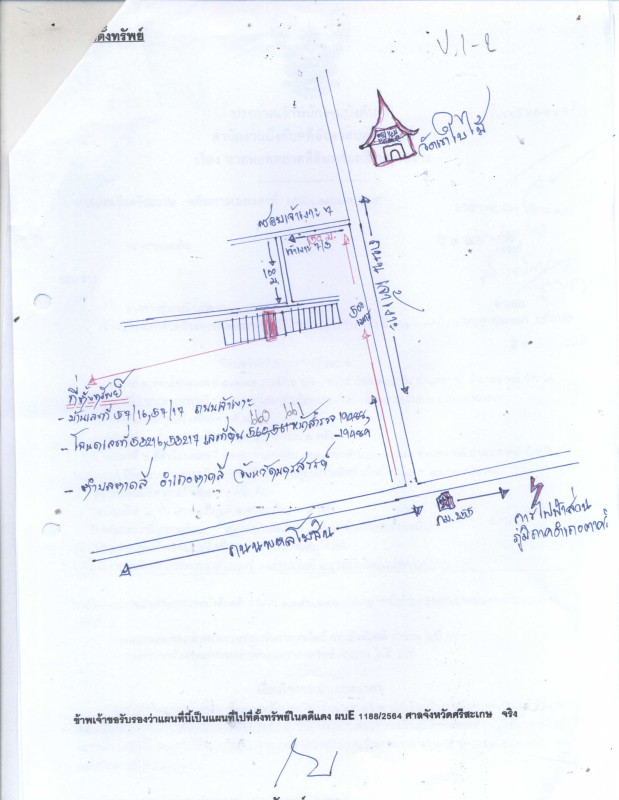 ตั้งทรัพย์
ป.1-2
วัดเขาใบไม้
ซอยเจ้าเงาะ 7
150 ม.
100 ม.
500 เมตร
ถนน เจ้าเงาะ
ที่ตั้งทรัพย์
- บ้านเลขที่ 57/16, 57/17 ถนนเจ้าเงาะ
660 661
- โฉนดเลขที่ 53216, 53217 เลขที่ดิน
- ตำบลตาคลี อำเภอตาคลี จังหวัดนครสวรรค์
กม. 255
การไฟฟ้าส่วน
ภูมิภาคอำเภอตาคลี
ถนนพหลโยธิน
ข้าพเจ้าขอรับรองว่าแผนที่นี้เป็นแผนที่ไปที่ตั้งทรัพย์ในคดีแดง ผบE 1188/2564 ศาลจังหวัดศรีสะเกษ จริง